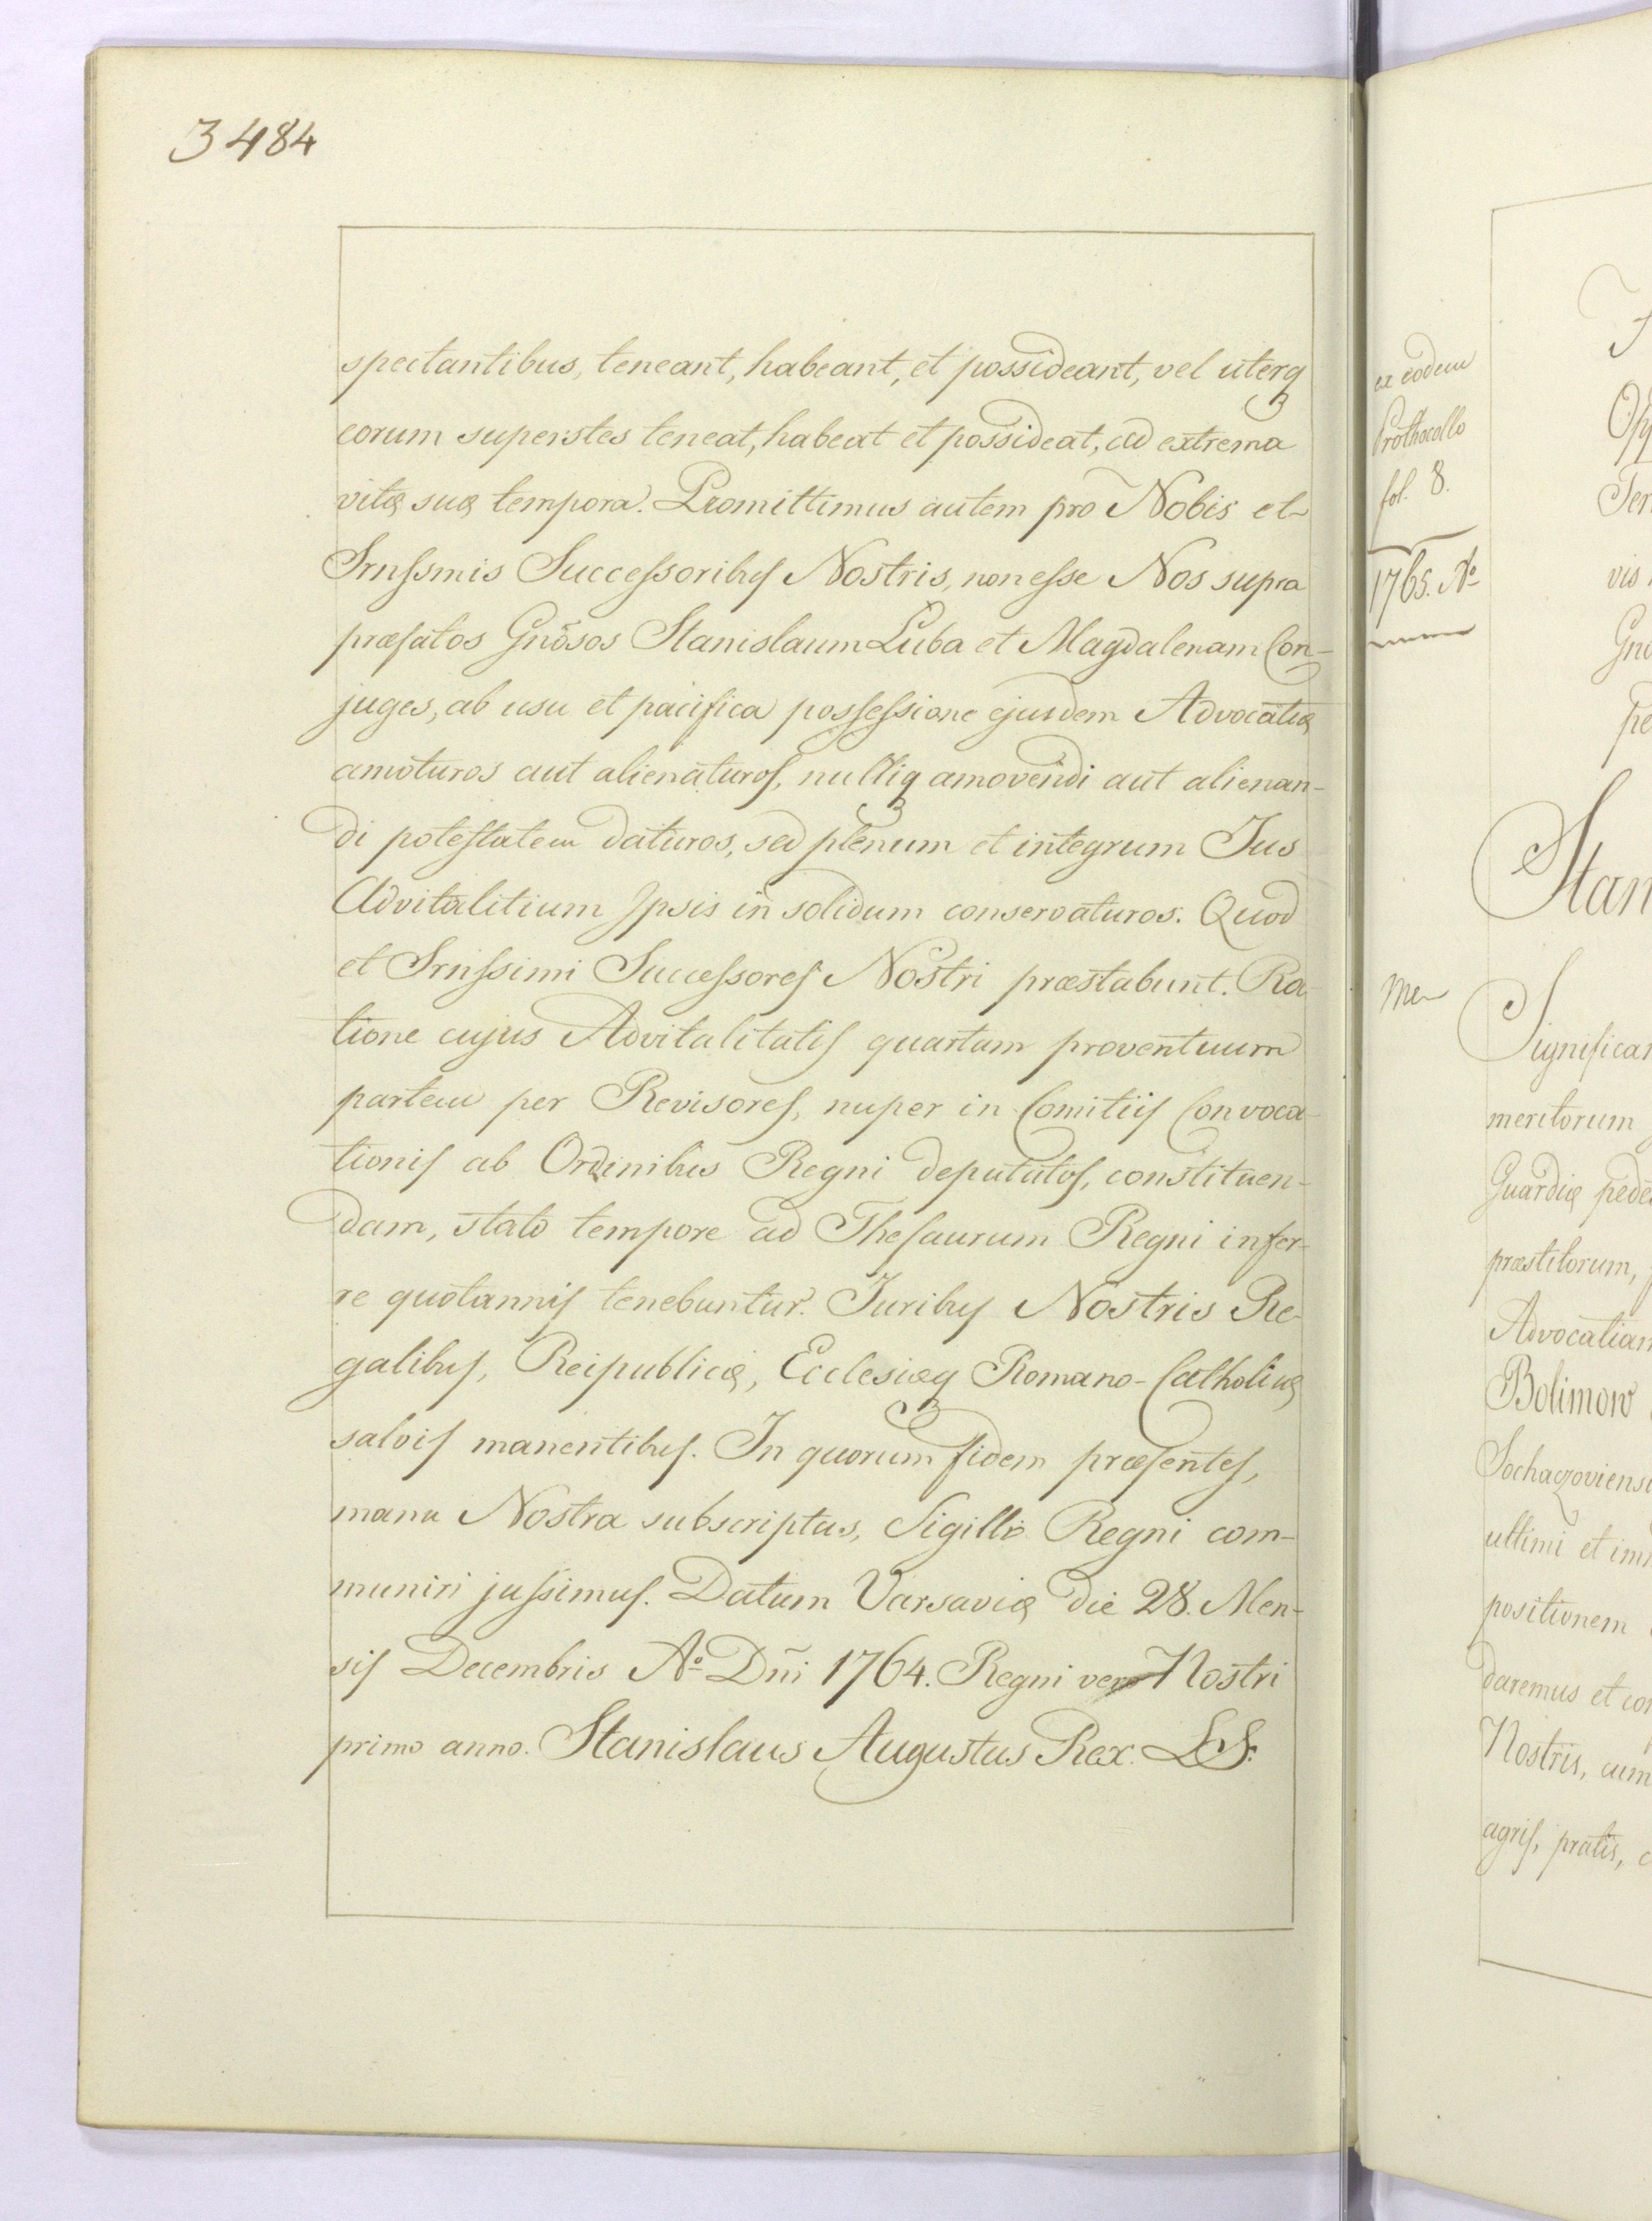 3484
spectantibus, teneant, habeant, et possideant, vel uterq
eorum superstes teneat, habeat et possideat, ad extrema
vitæ suæ tempora. Promittimus autem pro Nobis et
Srnſsmis Succeſsoribuſ Nostris, non eſse Nos supra
præfatos Gnõsos Stanislaum Luba et Magdalenam Con-
juges, ab usu et pacifica poſseſsione ejusdem Advocatiæ
amoturos aut alienaturoſ, nulliq amovendi aut alienan-
di poteſtatem daturos, sed plenum et integrum Jus
Advitalitium Ipsis in solidum conservaturos. Quod
et Srnſsimi Succeſsoreſ Nostri præstabunt. Ra-
tione cujus Advitalitatiſ quartam proventuum
partem per Revisoreſ, nuper in Comitiiſ Convoca-
tioniſ ab Ordinibus Regni deputatoſ, constituen-
dam, stato tempore ad Theſaurum Regni infer-
re quotanniſ tenebuntur. Juribuſ Nostris Re-
galibuſ, Reipublicæ, Ecclesiæq Romano-Catholicæ
salviſ manentibuſ. In quorum fidem præſenteſ,
manu Nostra subscriptas, Sigillo Regni com-
muniri juſsimuſ. Datum Varsaviæ die 28. Men-
siſ Decembris Aº Dñi 1764. Regni vero Nostri
primo anno. Stanislaus Augustus Rex. LS.
ex eodem
Prothocollo
fol. 8.
1765. Nº
Stan
Significa
meritorum
Guardiæ pede
præstitorum,
Advocatiam
Bolimow
Sochaczoviensi
ultimi et im
positionem
daremus et co
Nostris, cum
agriſ, pratis, c